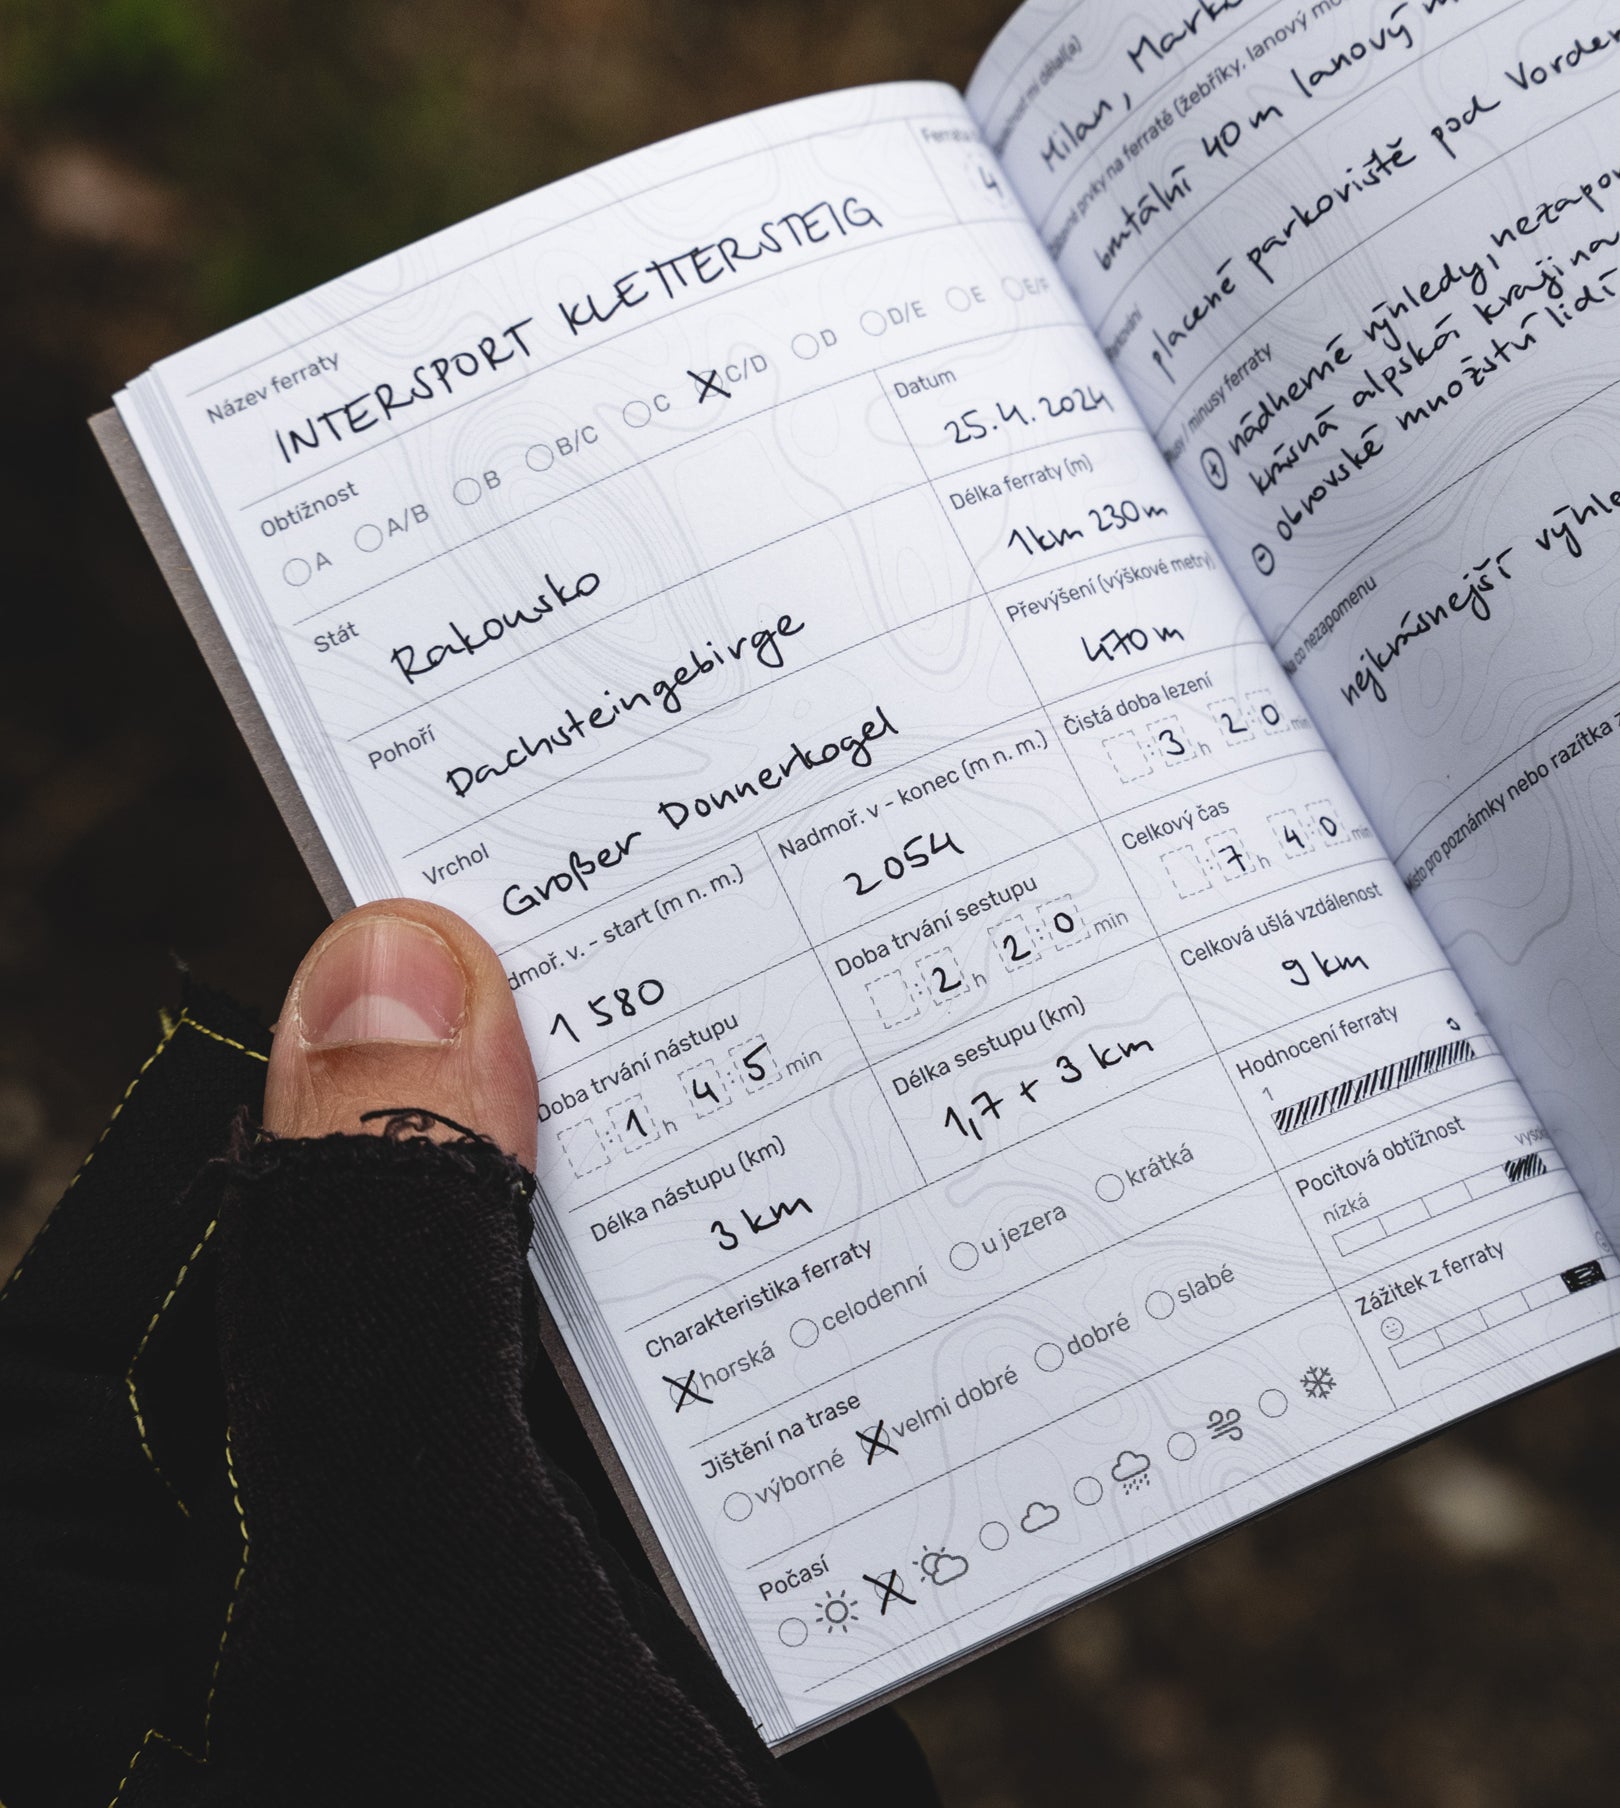 Název ferraty
INTERSPORT KLETTERSTEIG
4
Obtížnost
A A/B B B/C C C/D D D/E E E/F
Stát
Rakousko
Datum
25.4.2024
Pohoří
Dachsteingebirge
Délka ferraty (m)
1km 230m
Vrchol
Großer Donnerkogel
Převýšení (výškové metry)
470m
start (m n. m.)
1 580
Nadmoř. v - konec (m n. m.)
2054
Čistá doba lezení
3 h 20 min
Doba trvání nástupu
1 h 45 min
Doba trvání sestupu
2 h 20 min
Celkový čas
7 h 40 min
Délka nástupu (km)
3 km
Délka sestupu (km)
1,7 + 3 km
Celková ušlá vzdálenost
9 km
Charakteristika ferraty
horská celodenní u jezera krátká
Hodnocení ferraty
1
Jištění na trase
výborné velmi dobré dobré slabé
Pocitová obtížnost
nízká
Počasí
Zážitek z ferraty
Milan,
na ferratě (žebříky, lanový
brutální 40m lanový
placené parkoviště pod
minusy ferraty
+ nádherné výhledy,
krásná alpská krajina
- obrovské množství lidí
co nezapomenu
nejkrásnejší
Místo pro poznámky nebo razítka z